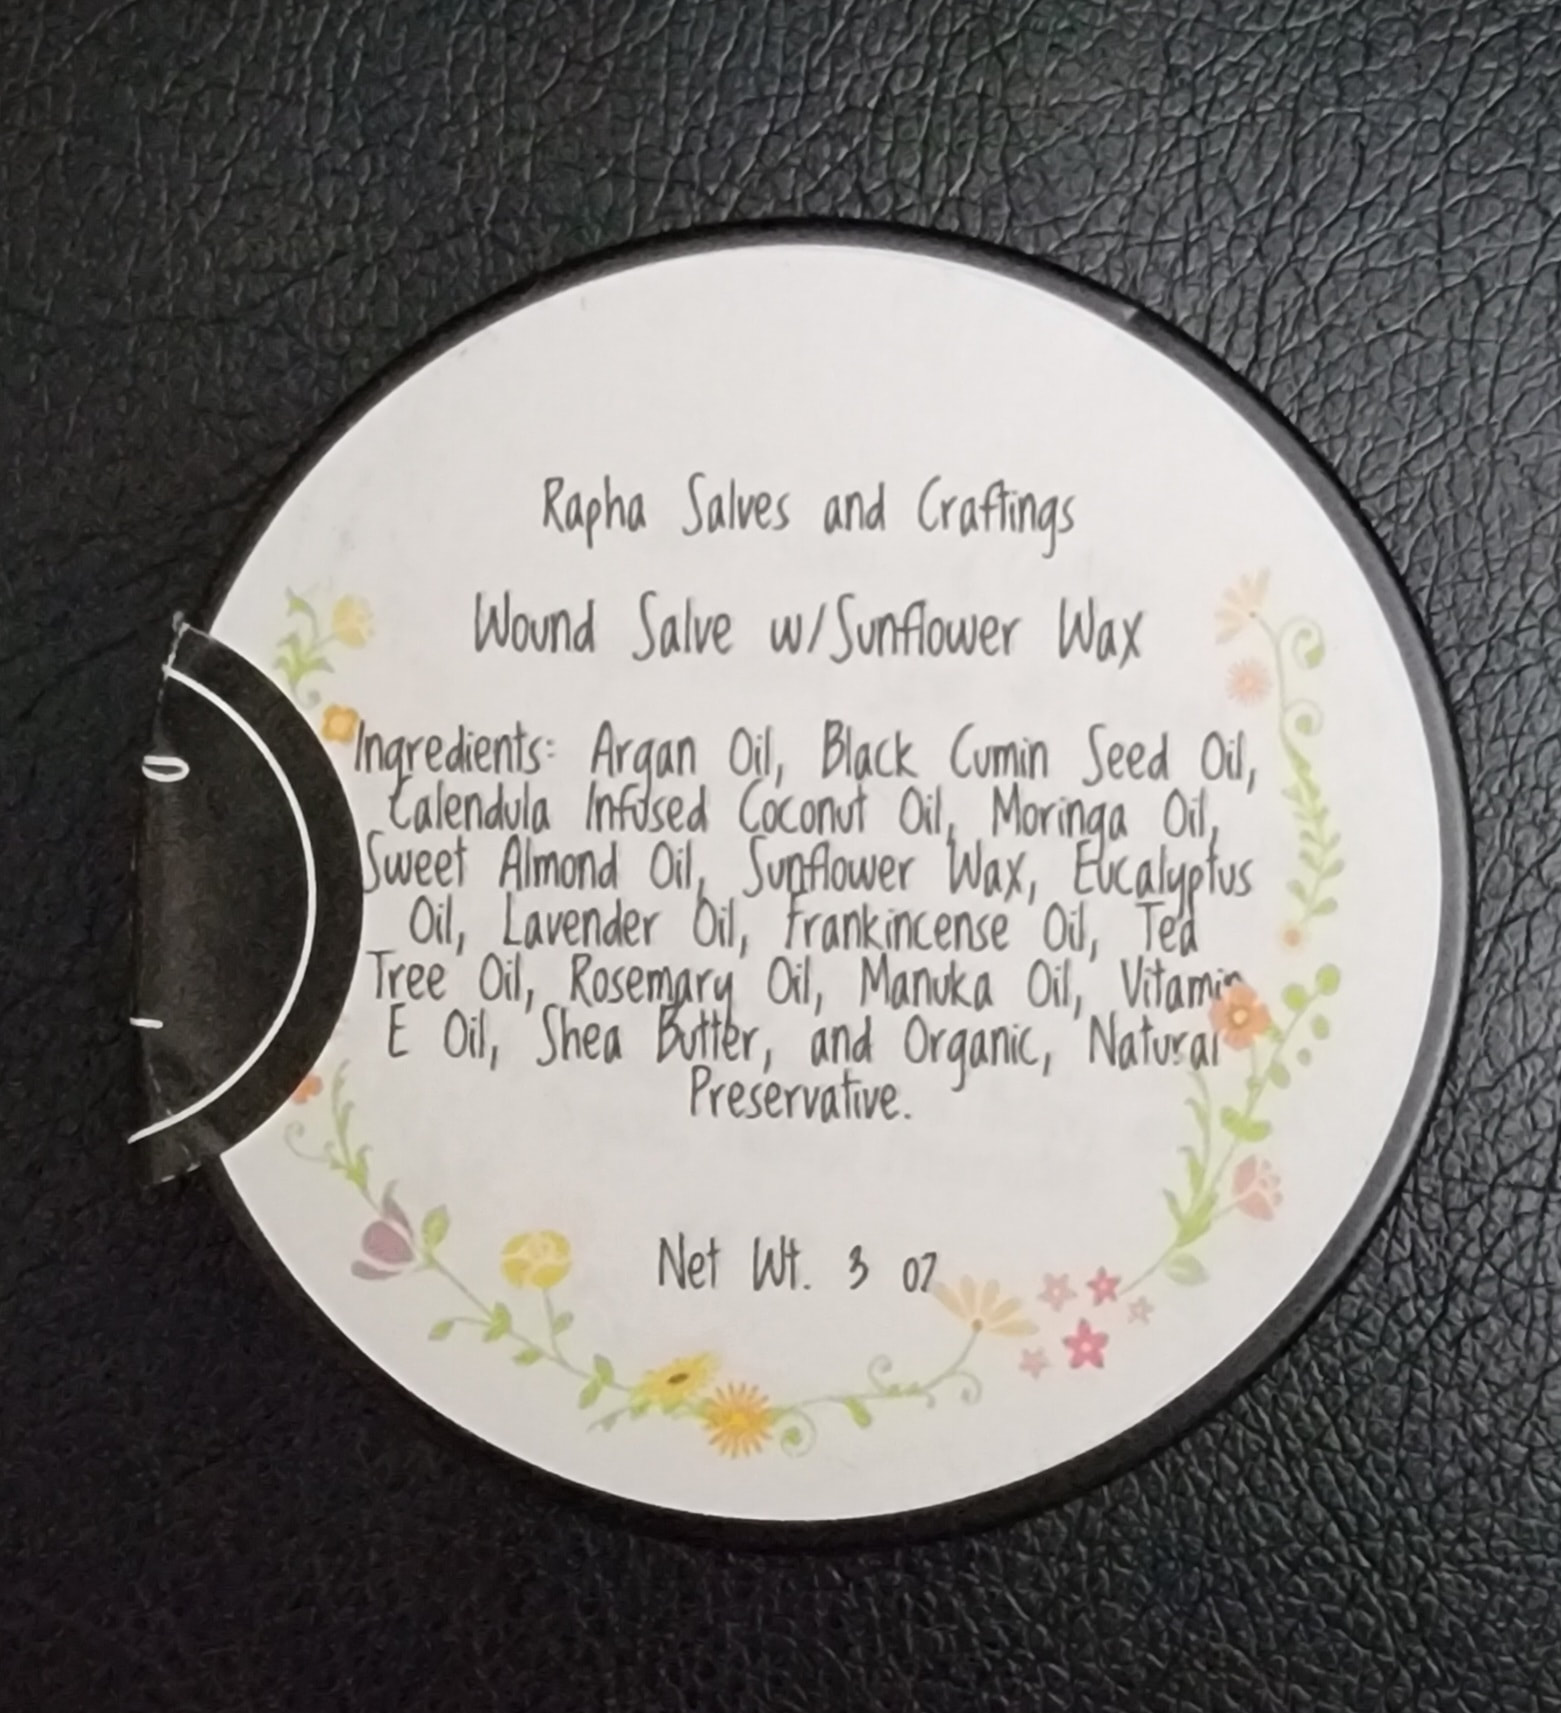 Rapha Salves and Craftings
Wound Salve w/Sunflower Wax
Ingredients: Argan Oil, Black Cumin Seed Oil,
Calendula Infused Coconut Oil, Moringa Oil,
Sweet Almond Oil, Sunflower Wax, Eucalyptus
Oil, Lavender Oil, Frankincense Oil, Tea
Tree Oil, Rosemary Oil, Manuka Oil, Vitamin
E Oil, Shea Butter, and Organic, Natural
Preservative.
Net Wt. 3 oz